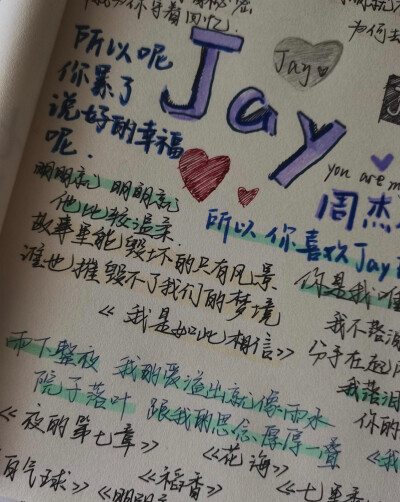 为你守着回忆
为何去
所以呢
你累了
说好的幸福
呢.
Jay
Jay
you are m
周杰
明明就 明明就
他比较温柔.
故事里能毁坏的只有风景
谁也摧毁不了我们的梦境
《我是如此相信》
所以你喜欢Jay
你是我唯
我不落泪
分手在起
我落泪
你的
雨下整夜 我的爱溢出就像雨水
院子落叶 跟我的思念厚厚一叠
《夜的第七章》
《花海》
《我
气球》
《稻香》
《七里香
《明明